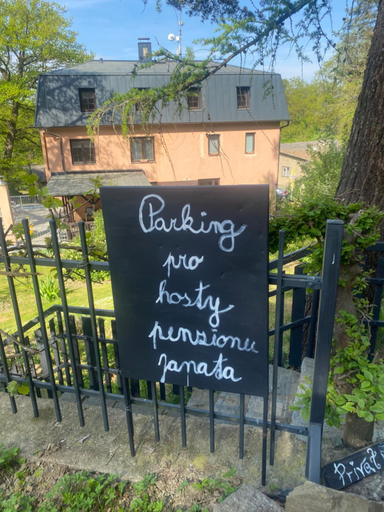 Parking
pro
hosty
penzionu
Janata
Privat